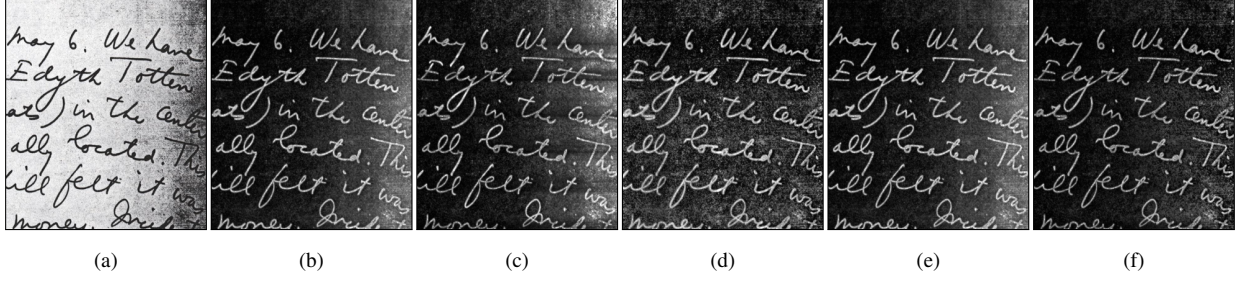 may 6. We have
Edyth Totten
ats) in the center
ally located. This
ill felt it was
money.
(a)
may 6. We have
Edyth Totten
ats) in the center
ally located. This
ill felt it was
money.
(b)
may 6. We have
Edyth Totten
ats) in the center
ally located. This
ill felt it was
money.
(c)
may 6. We have
Edyth Totten
ats) in the center
ally located. This
ill felt it was
money.
(d)
may 6. We have
Edyth Totten
ats) in the center
ally located. This
ill felt it was
money.
(e)
may 6. We have
Edyth Totten
ats) in the center
ally located. This
ill felt it was
money.
(f)